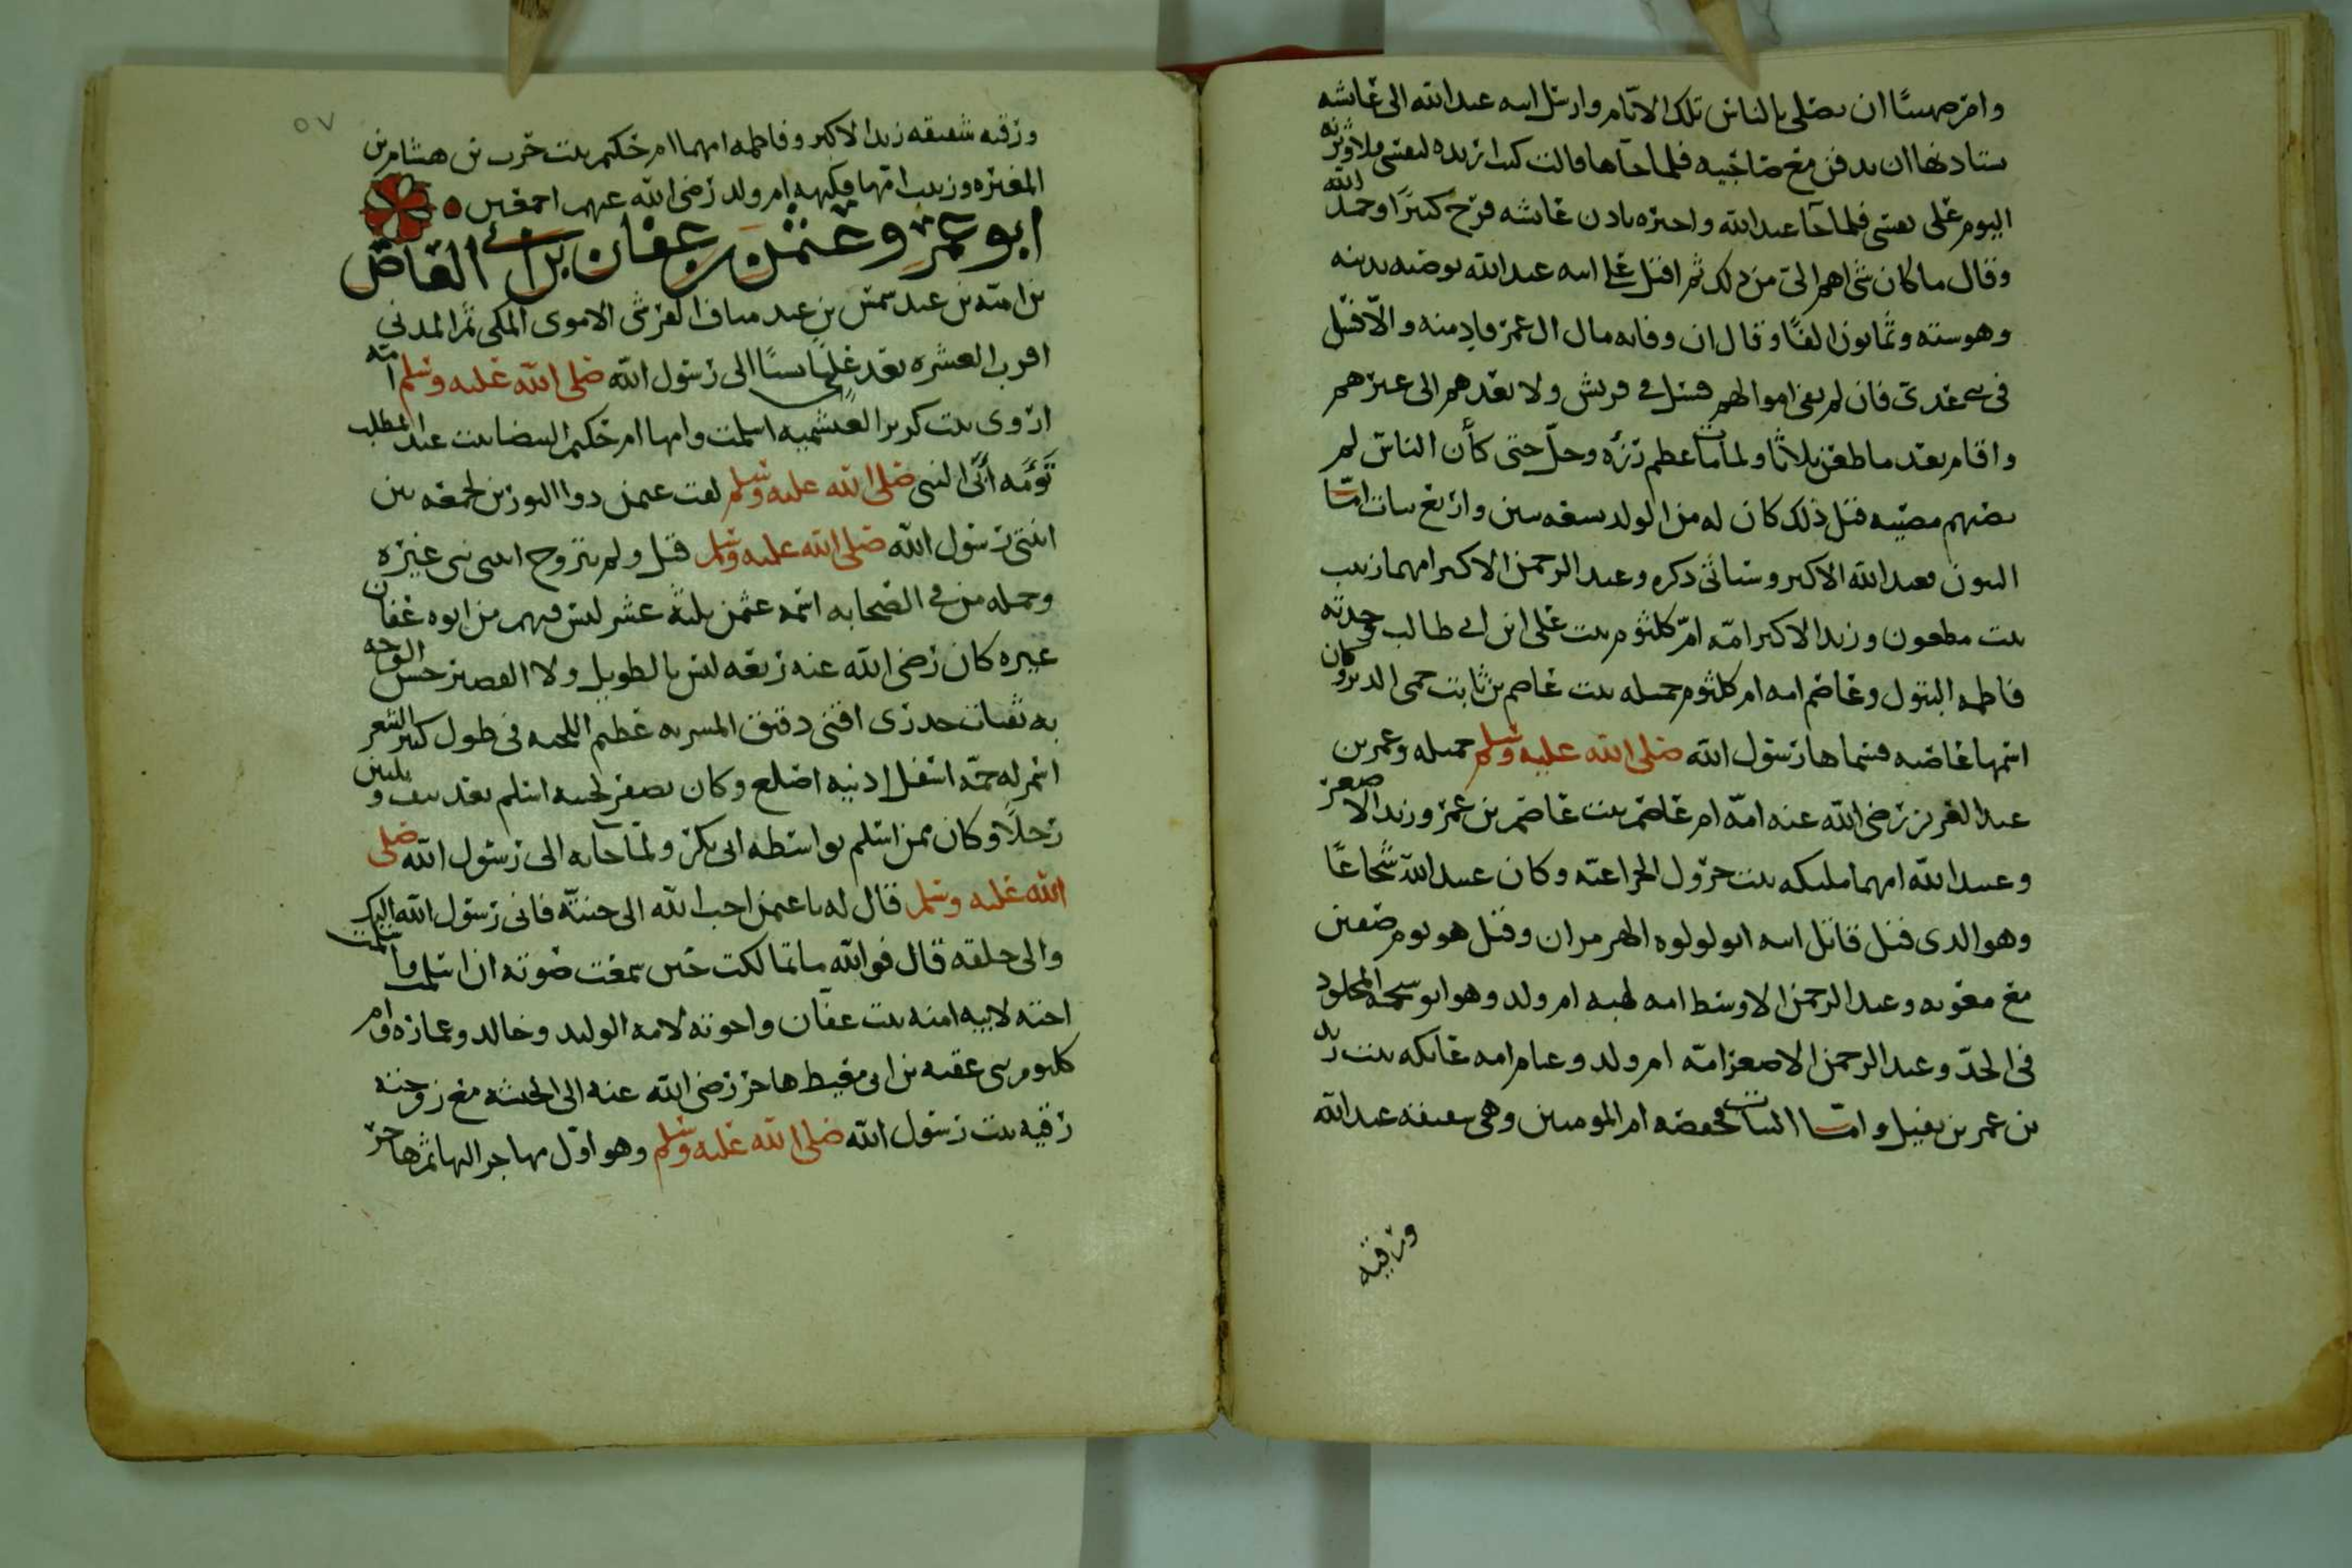 وامر صهيبًا ان يصلي بالناس تلك الايام وارسل ابنه عبدالله الى عائشه
يستاذنها ان يدفن مع صاحبيه فلما جآها قالت كنت اريده لنفسي ولاوثرنه
اليوم على نفسي فلما جآ عبدالله واخبره باذن عائشه فرح كثيرًا وحمد الله
وقال ما كان شي اهم الي من ذلك ثم اقبل على ابنه عبدالله يوصيه بدينه
وهو سته وثمانون الفًا وقال ان وفا به مال ال عمر فادِ منه والّا فسل
في بني عدي فان لم تفي اموالهم فسل في قريش ولا تعدهم الى غيرهم
واقام بعد ما طعن ثلاثًا ولما مات عظم رزؤه وجلّ حتى كأن الناس لم
تصبهم مصيبه قبل ذلك كان له من الولد سبعه بنين واربع بنات امّا
البنون فعبدالله الاكبر وسياتي ذكره وعبدالرحمن الاكبر امهما زينب
بنت مظعون وزيد الاكبر امّه امّ كلثوم بنت علي ابن ابي طالب وجدته
فاطمه البتول وعاصم امه ام كلثوم جميله بنت عاصم بن ثابت حمي الدبر وكان
اسمها عاصيه فسماها رسول الله صلى الله عليه وسلم جميله وعمر بن
عبد العزيز رضي الله عنه امّه ام عاصم بنت عاصم بن عمر وزيد الاصغر
وعبيدالله امهما مليكه بنت جرول الخزاعيّه وكان عبيدالله شجاعًا
وهو الذي قتل قاتل ابيه ابو لولوه الهرمزان وقتل هو يوم صفين
مع معويه وعبدالرحمن الاوسط امه لهيه ام ولد وهو ابو شحمه المجلود
في الحدّ وعبدالرحمن الاصغر امّه ام ولد وعيام امه عاتكه بنت زيد
بن عمر بن نفيل وامّا البنات فحفصه ام المومنين وهي شقيقه عبدالله
ورقيه
٥٧
ورقيه شقيقه زيد الاكبر وفاطمه امهما ام حكيم بنت حرب بن هشام بن
المغيره وزينب امّها فكيهه ام ولد رضي الله عنهم اجمعين
ابو عمرو عثمن بن عفان بن ابي العاص
بن اميه بن عبد شمس بن عبد مناف القرشي الاموي المكي ثم المدني
اقرب العشره بعد عليّ نسبًا الى رسول الله صلى الله عليه وسلم امه
اروى بنت كريز العبشميه اسلمت وامها ام حكيم البيضا بنت عبدالمطلب
توءمه أبي النبي صلى الله عليه وسلم لقب عثمن ذو االنورين لجمعه بين
ابنتي رسول الله صلى الله عليه وسلم قيل ولم يتزوج ابنتي نبي غيره
وجمله من في الصحابه اسمه عثمن ثلثه عشر ليس فيهم من ابوه عفان
غيره كان رضي الله عنه ربعه ليس بالطويل ولا القصير حسن الوجه
به نقبات جدري اقنى دقيق المسربه عظيم اللحيه في طول كثير الشعر
اسمر له جمّه اسفل اذنيه اصلع وكان يصفر لحيته اسلم بعد نيف وثلثين
رجلًا وكان ممن اسلم بواسطه ابي بكر ولمّا جا به الى رسول الله صلى
الله عليه وسلم قال له يا عثمن اجب الله الى جنتّه فاني رسول الله اليك
والى خلقه قال فوالله ما تمالكت حين سمعت صوته ان اسلمت واسلمت
اخته لابيه امنه بنت عفّان واخوته لامه الوليد وخالد وعماره وام
كلثوم بني عقبه بن ابي معيط هاجر رضي الله عنه الى الحبشه مع زوجته
رقيه بنت رسول الله صلى الله عليه وسلم وهو اوّل مهاجر اليها ثم هاجر